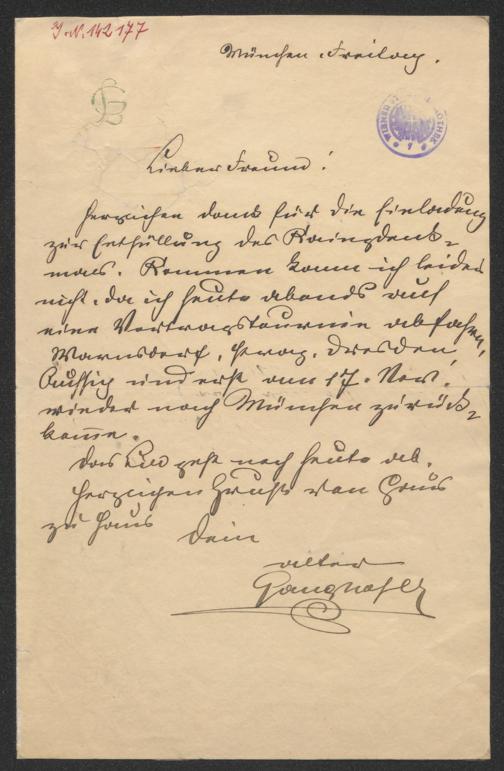 J.N. 142.177
München. Freitag.
LG
WIENER
Lieber Freund!
Herzlichen Dank für die Einladung
zur Enthüllung des
mals. Kommen kann ich leider
nicht, da ich heute abends auf
eine Vortragstournée abfahre,
Warnsdorf, Prag, Dresden
Aussig und erst am 17. Nov.
wieder nach München zurück-
komme.
Das geht noch heute ab.
Herzlichen Gruß von Haus
zu Haus
Dein
alter
Ganghofer